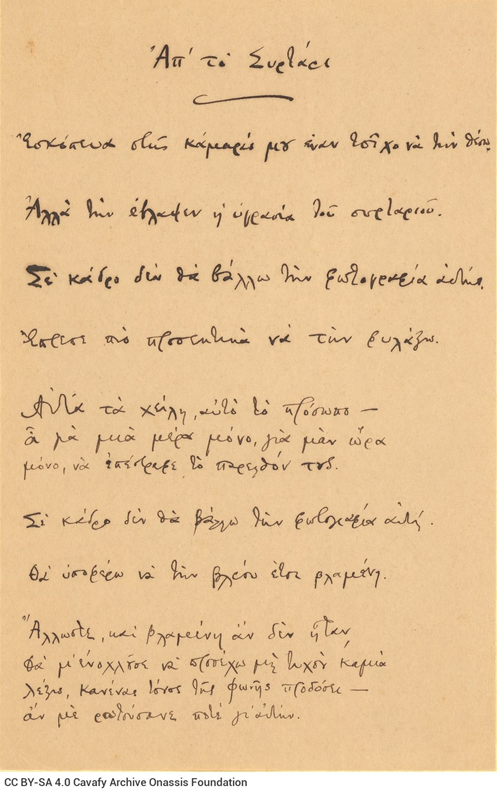 Ἀπ' τὸ Συρτάρι
Ἐσκόπευα στῆς κάμαράς μου ἕναν τοῖχο νὰ τὴν θέσω.
Ἀλλὰ τὴν ἔβλαψεν ἡ ὑγρασία τοῦ συρταριοῦ.
Σὲ κάδρο δὲν θὰ βάλλω τὴν φωτογραφία αὐτή.
Ἔπρεπε πιὸ προσεκτικὰ νὰ τὴν φυλάξω.
Αὐτὰ τὰ χείλη, αὐτὸ τὸ πρόσωπο —
ἆ γιὰ μιὰ μέρα μόνο, γιὰ μιὰν ὥρα
μόνο, νὰ ἐπέστρεφε τὸ παρελθόν των.
Σὲ κάδρο δὲν θὰ βάλλω τὴν φωτογραφία αὐτή.
Θὰ ὑποφέρω νὰ τὴν βλέπω ἔτσι βλαμένη.
Ἄλλωστε, καὶ βλαμένη ἂν δὲν ἦταν,
θὰ μ' ἐνοχλοῦσε νὰ προσέχω μὴ τυχὸν καμιὰ
λέξις, κανένας τόνος τῆς φωνῆς προδώσει —
ἂν μὲ ρωτούσανε ποτὲ γι' αὐτήν.
CC BY-SA 4.0 Cavafy Archive Onassis Foundation